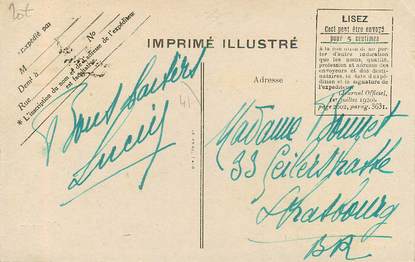 20f
Expédié par
M
Dem^t à
Rue
* L'inscription du nom et de l'adresse de l'expéditeur
est facultative.
IMPRIMÉ ILLUSTRÉ
LISEZ
Ceci peut être envoyé
pour 5 centimes
à la condition de ne porter d'autre indication
que les nom, qualité,
profession et adresse
des envoyeurs et des destinataires, la date d'expédition et la signature de
l'expéditeur.
(Journal Officiel,
1er juillet 1920,
page 9302, parag. 363).
Adresse
Bons baisers
Lucie
41
Madame
33 Geilerstrasse
Strasbourg